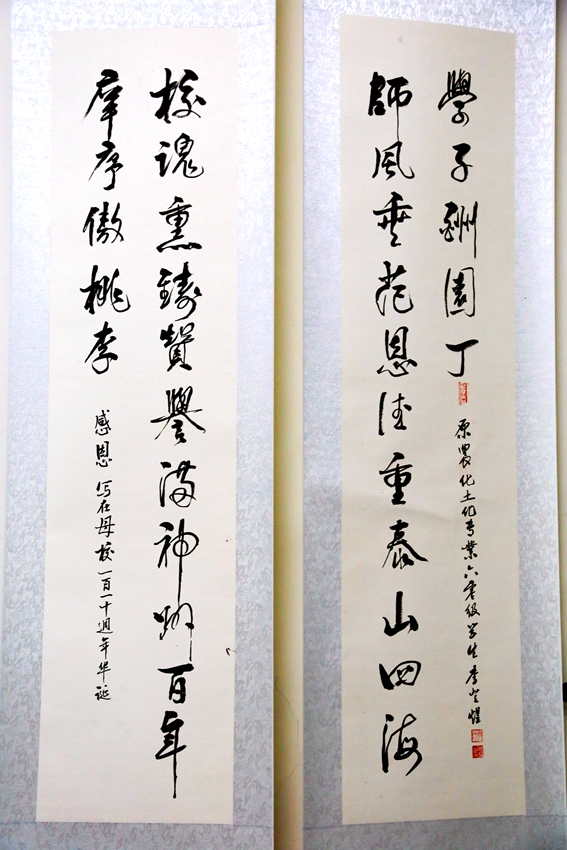 校魂熏鑄贊譽滿神州百年
庠序傲桃李
感恩 写在母校一百一十週年华诞
師風垂范恩德重泰山四海
學子酬園丁
原農化土化专業六零级学生李登